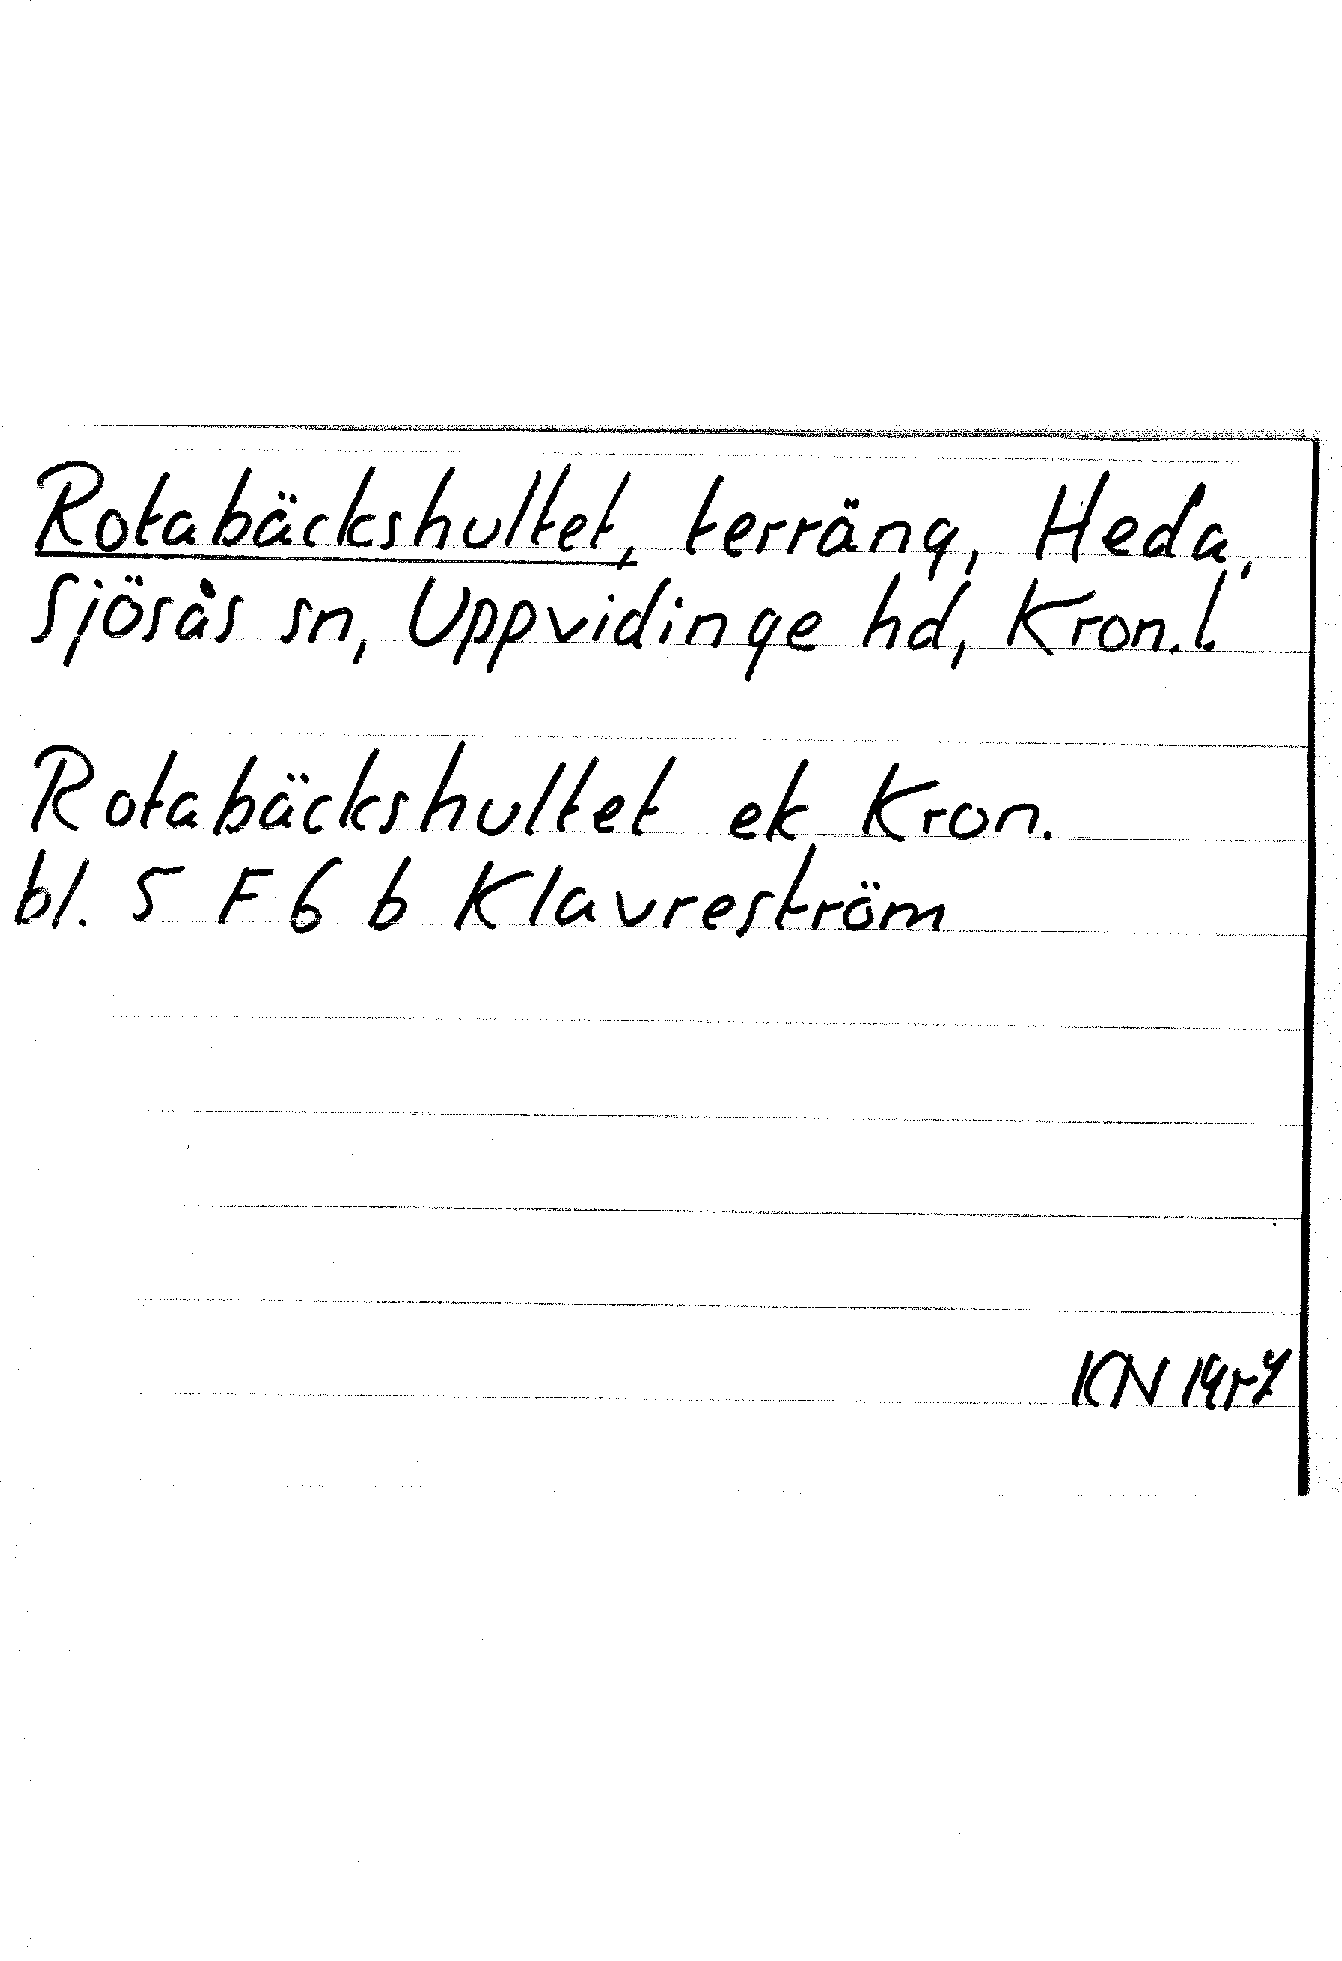 Rotabäckshultet, terräng, Heda,
Sjösås sn, Uppvidinge hd, Kron.l.
Rotabäckshultet ek Kron.
bl. 5 F 6 b Klavreström
KN 1957